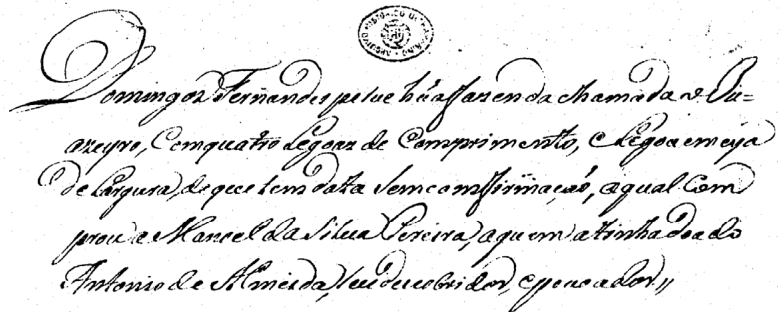 ARQUIVO HISTORICO ULTRAMARINO
Domingos Fernandes pessue húa fazenda chamada o Jua=
azeyro, Com quatro Legoaz de Comprimento, e Legoa e meya
de Largura, de que tem data sem comffirmação, a qual Com
prou a Manoel da Silva Pereira, a quem a tinha doado
Antonio de Almeida, seu descobridor, e povoador,,